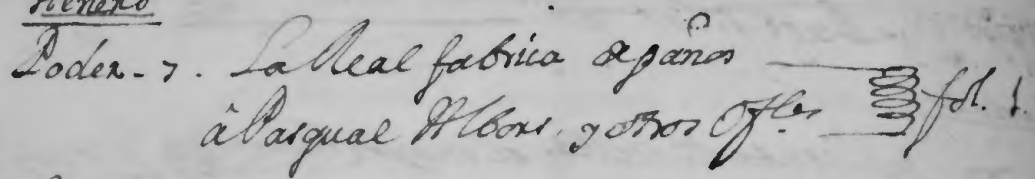 Henero
Poder. 7. La Real fabrica de paños
â Pasqual Albors. y otros Ofles fol. 1